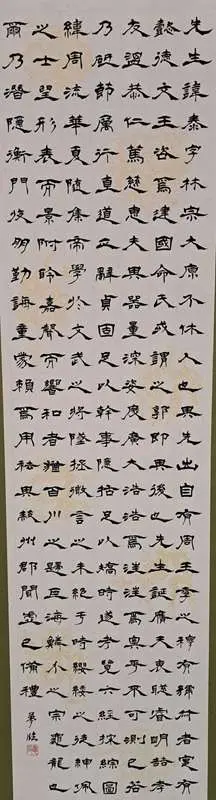 先生諱泰字林宗太原界休人也其先出自有周王季之穆有虢叔者寔有
懿德文王咨焉建國命氏或謂之郭即其後也先生誕膺天衷聰睿明哲孝
友溫恭仁篤慈惠夫其器量弘深姿度廣大浩浩焉汪汪焉奧乎不可測已若
乃砥節厲行直道正辭貞固足以幹事隱括足以矯時遂考覽六經探綜圖
緯周流華夏隨集帝學收文武之將墜拯微言之未絕于時纓緌之徒紳佩
之士望形表而景附聆嘉聲而響和者猶百川之歸巨海鱗介之宗龜龍也
爾乃潛隱衡門收朋勤誨童蒙賴焉用祛其蔽州郡聞德虛己備禮